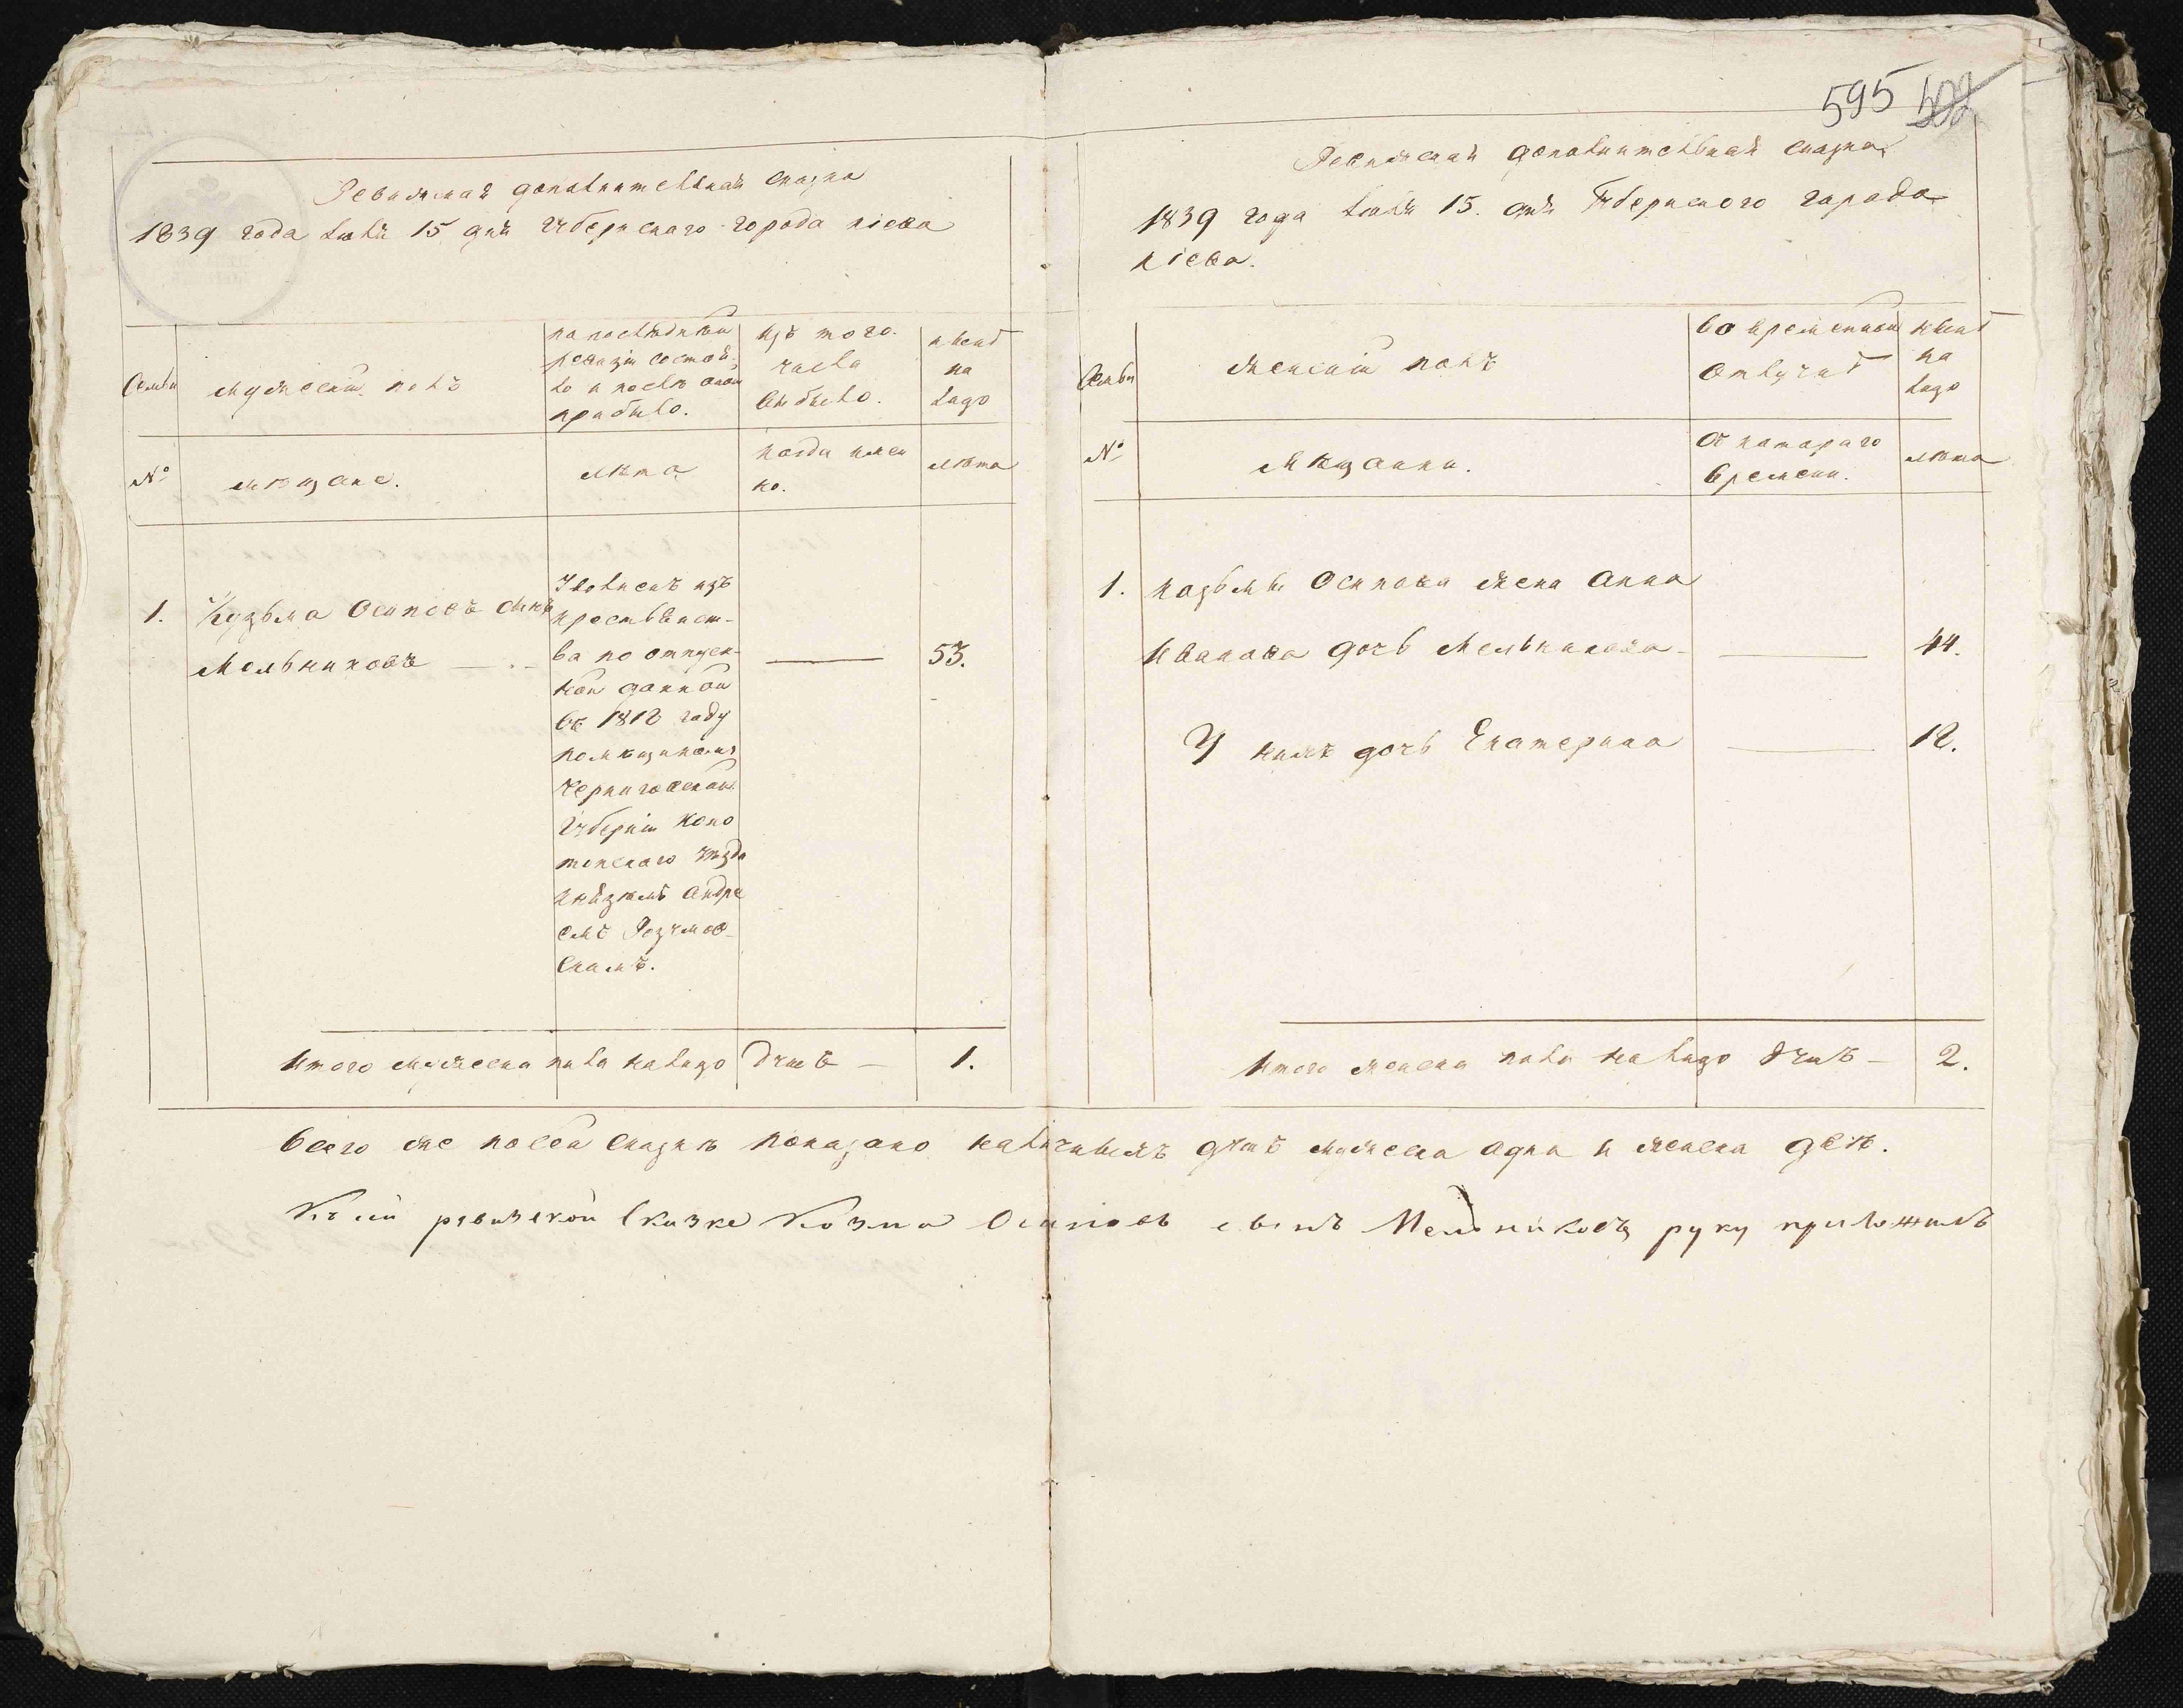 595 502
Ревижская дополнительная сказка
1839 года Іюля 15 дня Губернскаго города Кіева
Семьи
мужескій полъ
по последней
ревизіи состоя-
ло и после оной
прибыло.
изъ того
числа
выбыло.
ныне
на
лицо
№
мещане.
лета
когда имен
но.
лета
1.
Кузьма Осиповъ сынъ
Мельниковъ
Уволненъ изъ
крестьянст-
ва по отпуск-
ной данной
въ 1812 году
помещикомъ
Черниговской
Губерніи Коно
топскаго уезда
Княземъ Андре
емъ Розумов-
скимъ.
53.
Итого мужеска пола налицо душъ — 1.
Ревижская дополнительная сказка
1839 года Іюля 15. дня Губернского города
Кіева.
Семьи
Женскій полъ
во временной
отлучке
ныне
на
лицо
№
Мещанки.
съ котораго
времени.
лета
1. Козьмы Осипова жена Анна
Иванова дочь Мельникова 44.
У нихъ дочь Екатерина 12.
Итого женска пола налицо душъ — 2.
Всего же по сей сказке показано наличныхъ душъ мужеска одна и женска две.
Къ сей ревизской сказке Козма Осиповъ сынъ Мельниковъ руку приложилъ